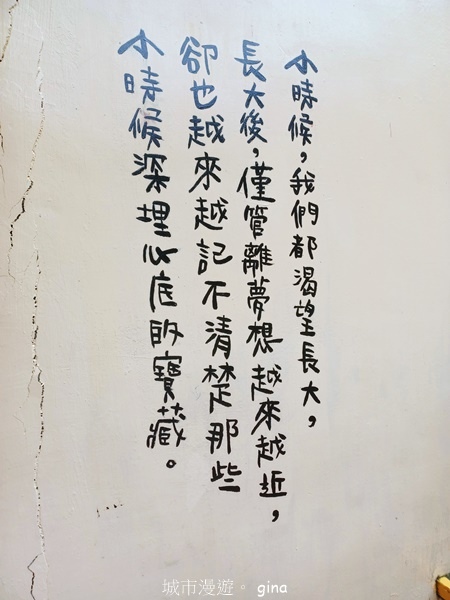 小時候，我們都渴望長大，
長大後，僅管離夢想越來越近，
卻也越來越記不清楚那些
小時候深埋心底的寶藏。
城市漫遊。 gina